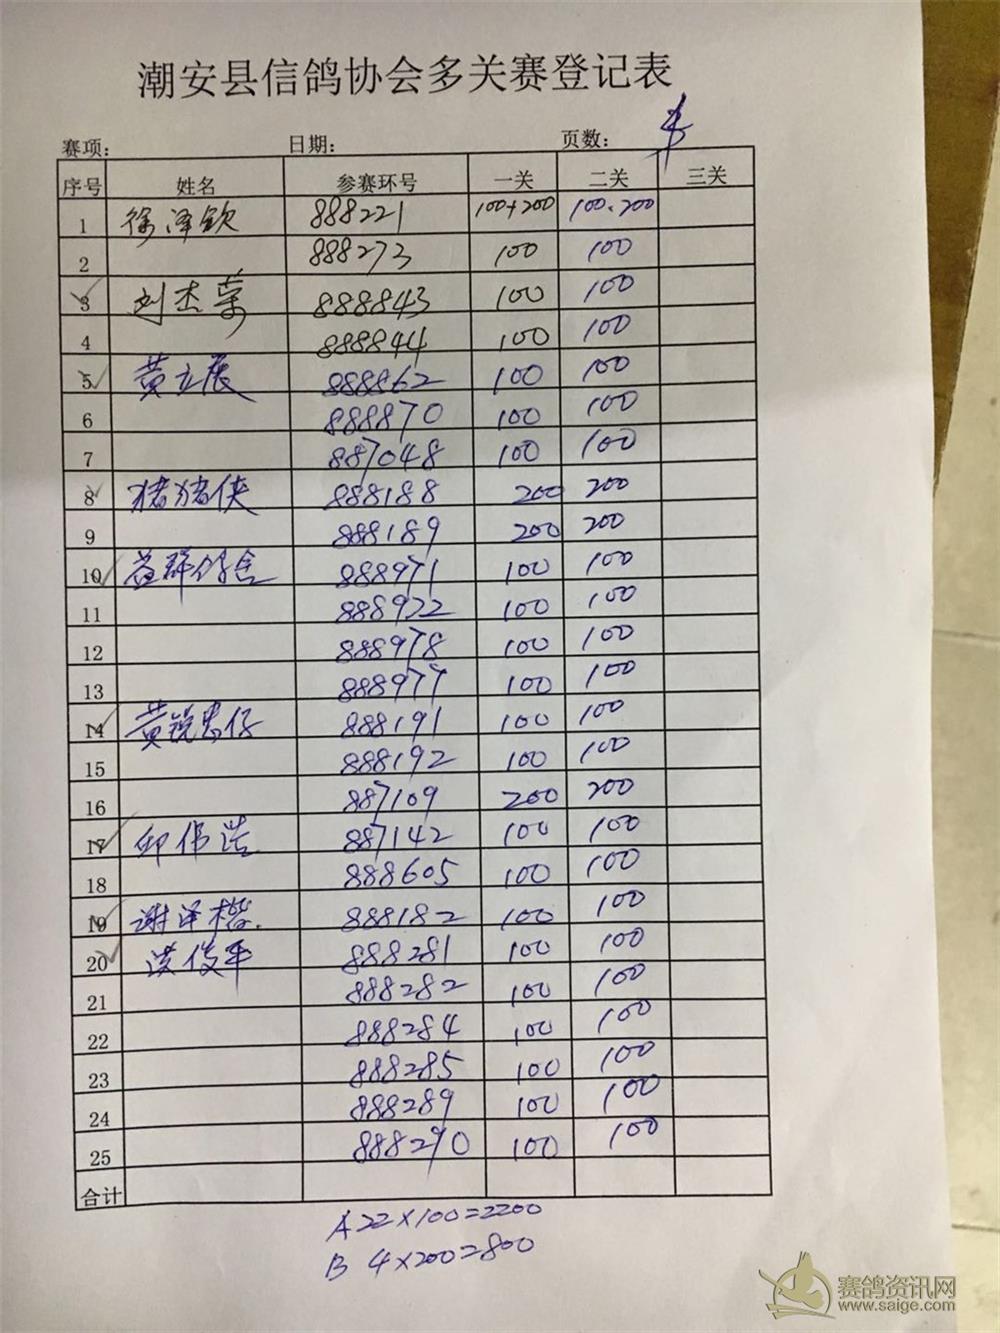 潮安县信鸽协会多关赛登记表
赛项: 日期: 页数:
序号 姓名 参赛环号 一关 二关 三关
1 徐泽钦 888221 100+200 100.200
2 888273 100 100
3 刘杰荣 888843 100 100
4 888844 100 100
5 黄立展 888862 100 100
6 888870 100 100
7 887048 100 100
8 猪猪侠 888188 200 200
9 888189 200 200
10 益群鸽舍 888971 100 100
11 888972 100 100
12 888978 100 100
13 888977 100 100
14 黄锐忠仔 888191 100 100
15 888192 100 100
16 887109 200 200
17 邱伟浩 887142 100 100
18 888605 100 100
19 谢泽楷. 888182 100 100
20 洪俊平 888281 100 100
21 888282 100 100
22 888284 100 100
23 888285 100 100
24 888289 100 100
25 888290 100 100
合计
A 22×100=2200
B 4×200=800
赛鸽资讯网
www.saige.com